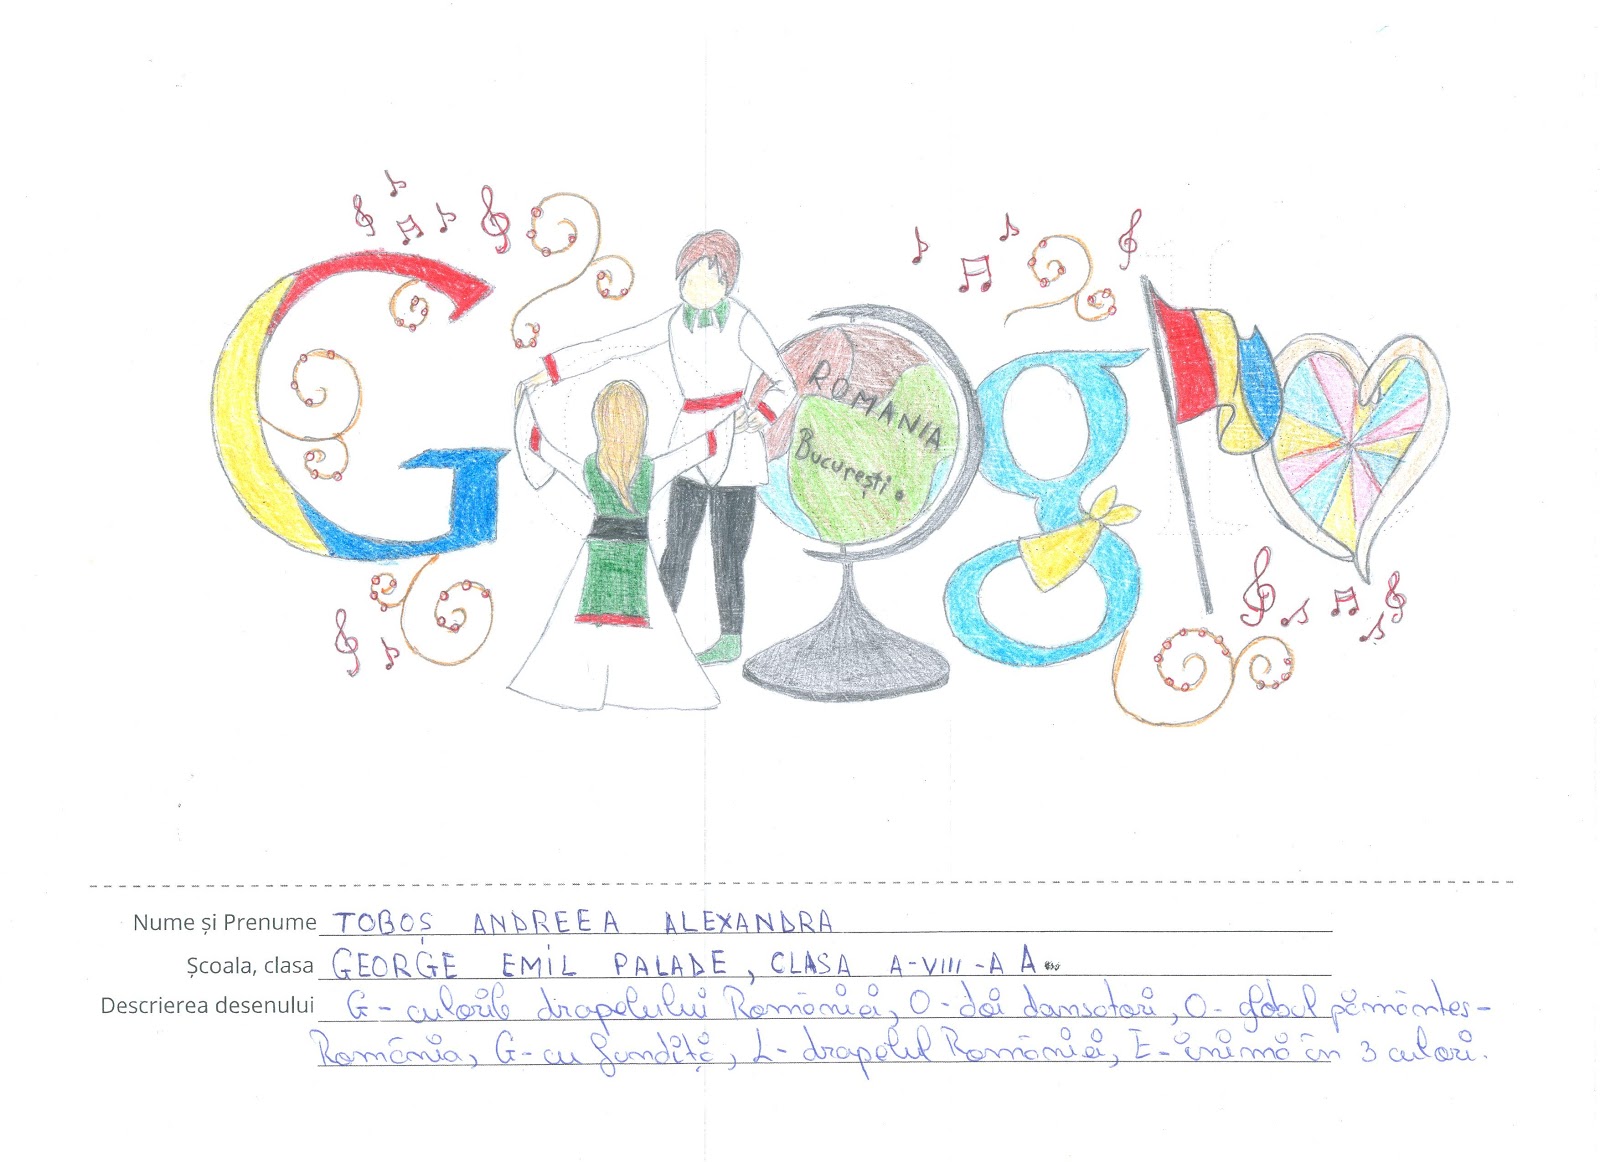 G g
ROMANIA
București
Nume și Prenume TOBOȘ ANDREEA ALEXANDRA
Școala, clasa GEORGE EMIL PALADE, CLASA A-VIII-A A
Descrierea desenului G - culorile drapelului României, O - doi dansatori, O - globul pământes-
România, G - cu fundiță, L - drapelul României, E - inimă în 3 culori.